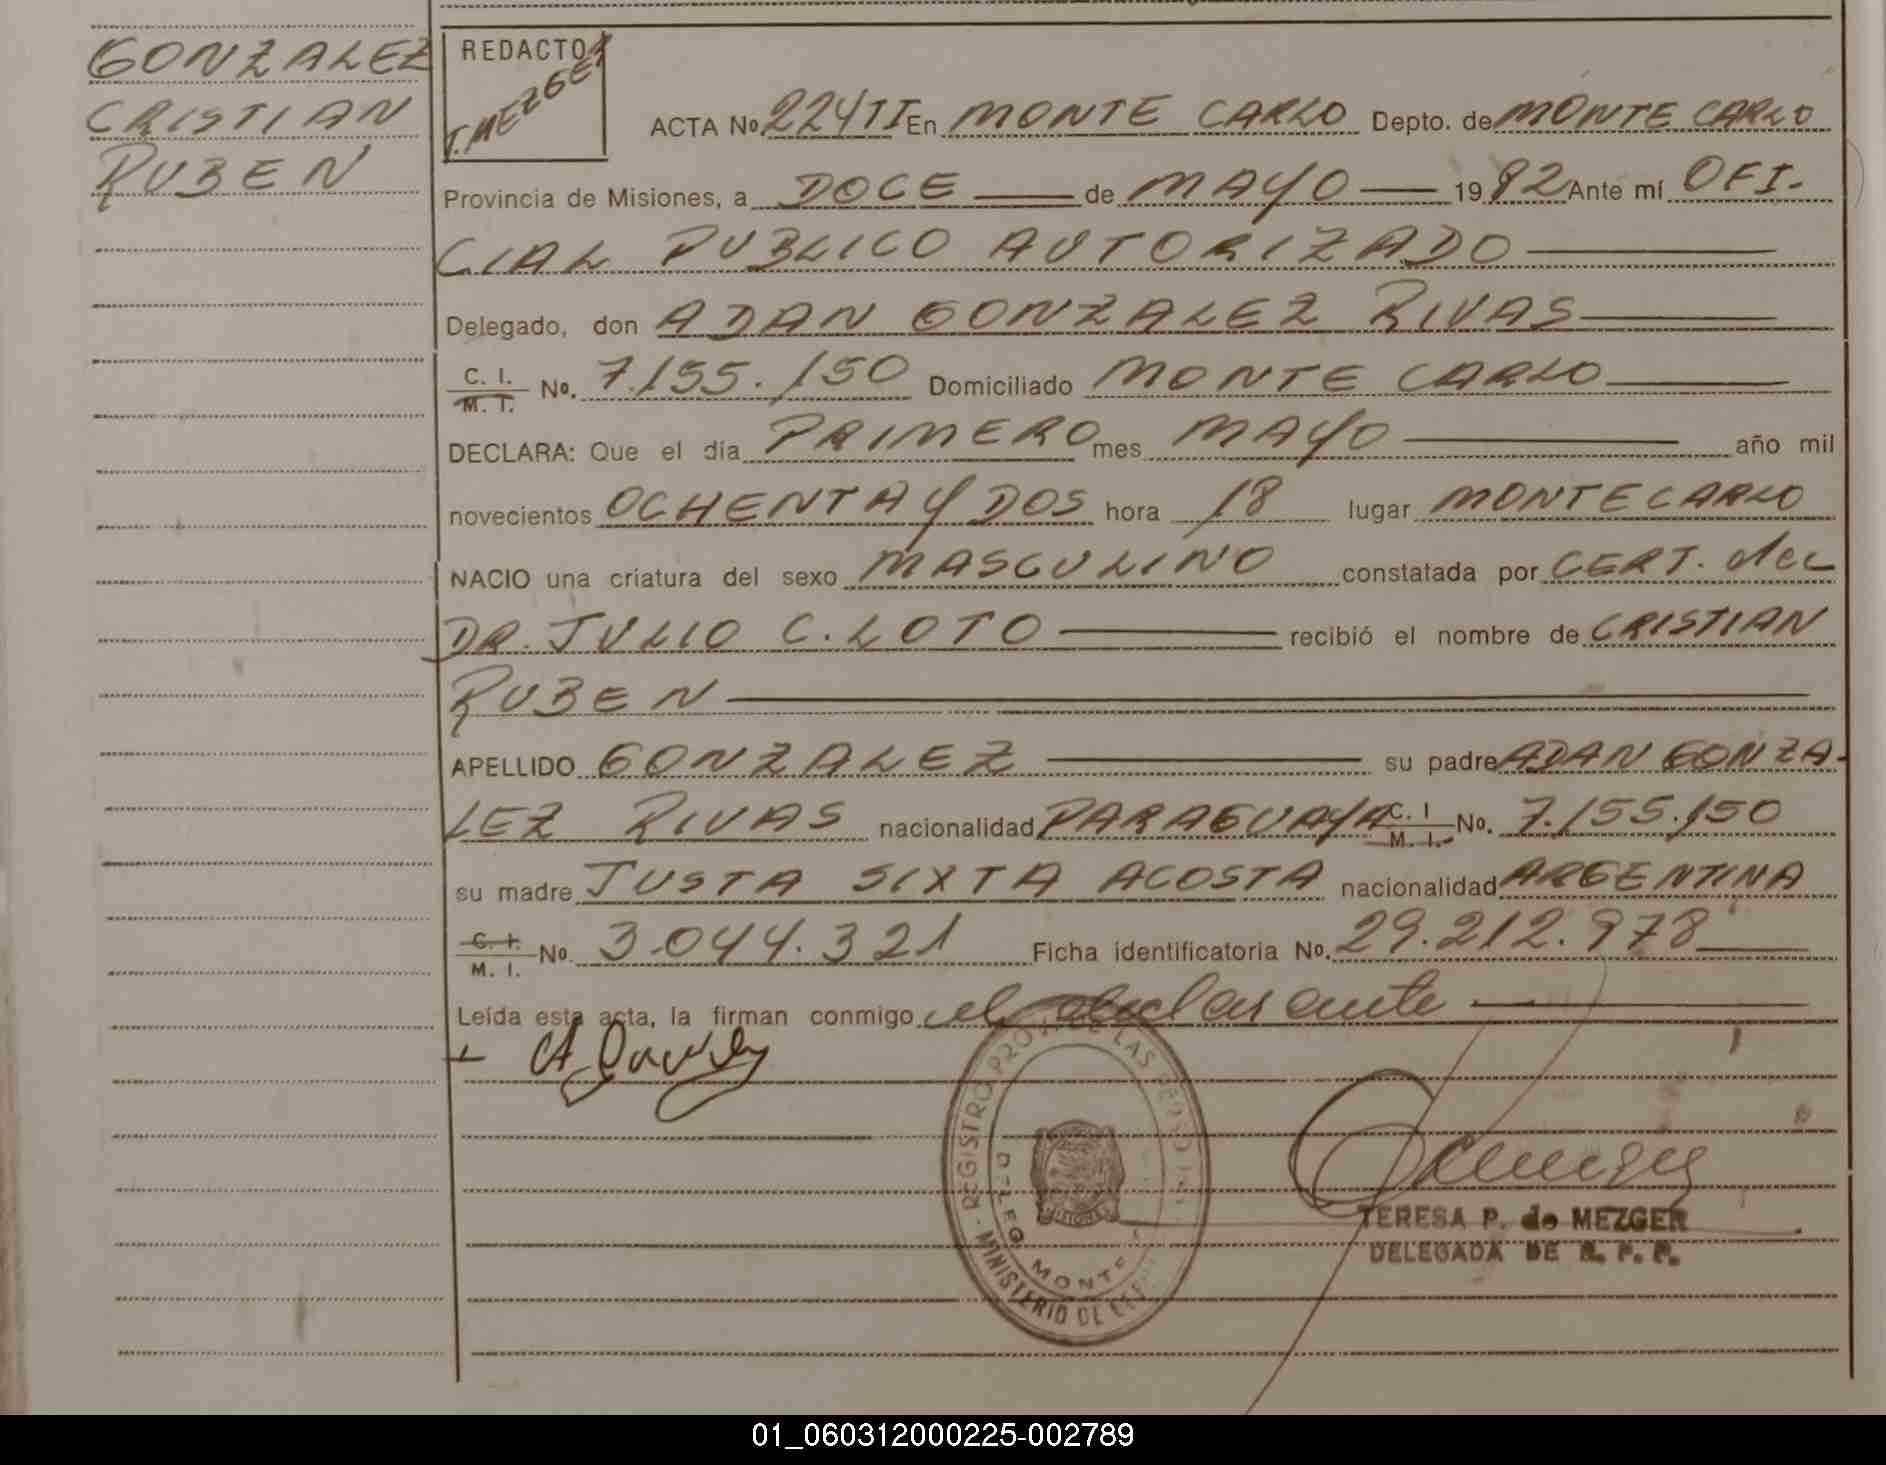 GONZALEZ
CRISTIAN
RUBEN
REDACTOR
T. MEZGER
ACTA No 224TI En MONTE CARLO Depto. de MONTE CARLO
Provincia de Misiones, a DOCE de MAYO 1982 Ante mí OFI-
CIAL PUBLICO AUTORIZADO
Delegado, don ADAN GONZALEZ RIVAS
C. I.
M. I. No. 7.155.150 Domiciliado MONTE CARLO
DECLARA: Que el día PRIMERO mes MAYO año mil
novecientos OCHENTA Y DOS hora 18 lugar MONTECARLO
NACIO una criatura del sexo MASCULINO constatada por CERT. del
DR. JULIO C. LOTO recibió el nombre de CRISTIAN
RUBEN
APELLIDO GONZALEZ su padre ADAN GONZA-
LEZ RIVAS nacionalidad PARAGUAYA C. I
M. I. No. 7.155.150
su madre JUSTA SIXTA ACOSTA nacionalidad ARGENTINA
C. I.
M. I. No. 3.044.321 Ficha identificatoria No. 29.212.978
Leída esta acta, la firman conmigo el declarante
REGISTRO PROV. DE LAS PERSO
MINISTERIO DE
DELEG MONTE
MISIONES
TERESA P. de MEZGER
DELEGADA DE R. P. P.
01_060312000225-002789